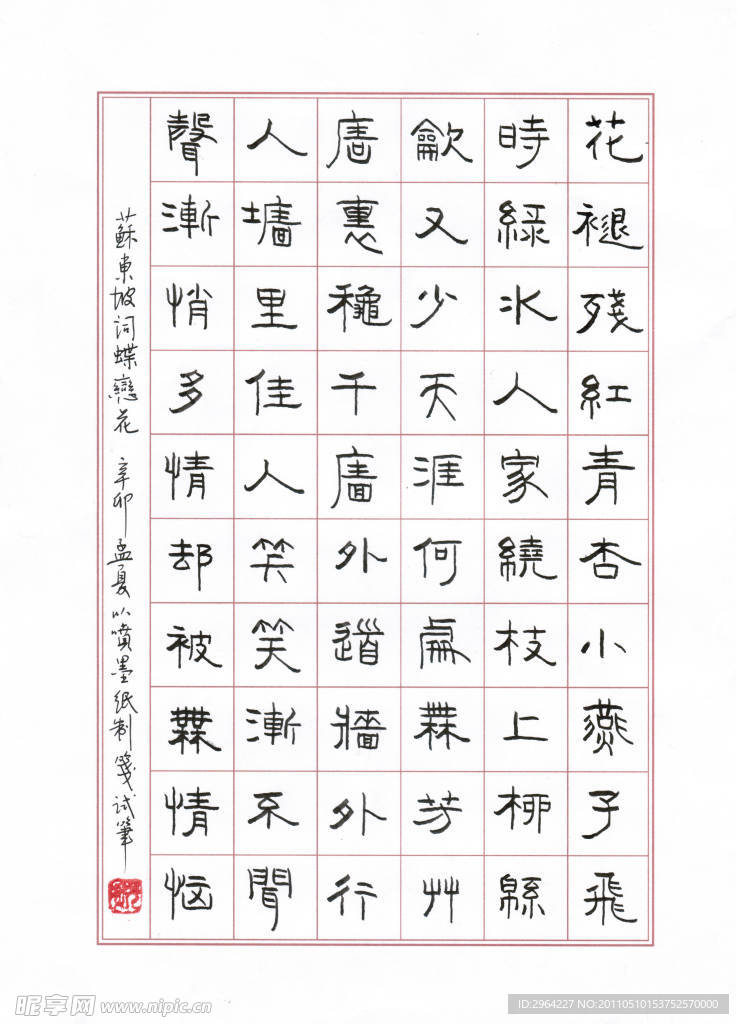 花褪殘紅青杏小燕子飛
時綠水人家繞枝上柳緜
龡又少天涯何處無芳艸
廧裏穐千廧外道牆外行
人墻里佳人笑笑漸不聞
聲漸悄多情却被無情恼
蘇東坡詞蝶戀花 辛卯孟夏以噴墨紙制箋試筆
昵享网 www.nipic.cn
ID:2964227 NO:20110510153752570000